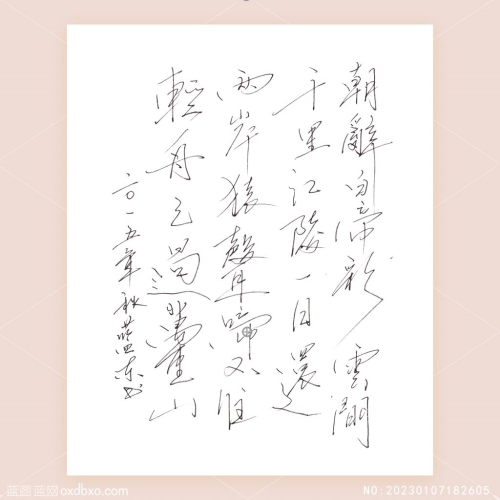 朝辭白帝彩雲間
千里江陵一日還
兩岸猿聲啼不住
輕舟已過萬重山
二〇一五年秋
oxdbxo.com
NO:20230107182605